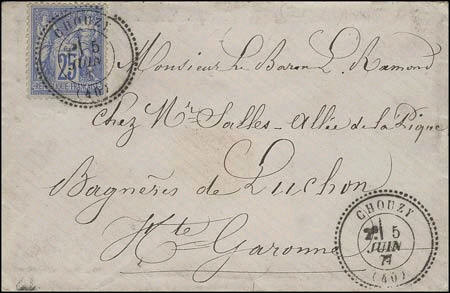 CHOUZY
5
JUIN
(40)
25
REPUBLIQUE FRANÇAISE
Monsieur Le Baron L. Ramond
Chez Mr. Salles - Allée de la Pique
Bagnères de Luchon
Hte Garonne
CHOUZY
5
JUIN
(40)